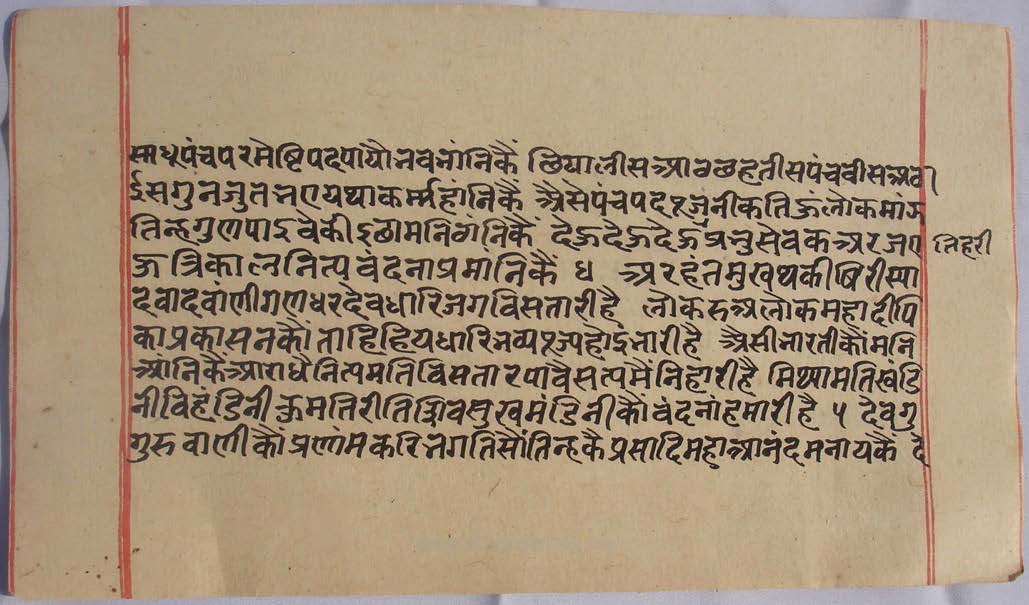 साधूपंचपरमेष्टिपदपायौनवनांनिकैं छियालीसआठछहतीसपंचवीसअठा
ईसगुनजुतनएयथाकर्म्महांनिकैं अैसेपंचपद
तिन्हगुणपाइवैकी दैऊदैऊदैऊप्रभुसेवकअरज तिहरी
ऊ त्रिकालनित्पवंदनाप्रमानिकैं ४ अरहंतमुखथकीषिरीस्या
दवादवांणीगणधरदेवधारिजगविसतारीहै लोकरुअलोकमहादीपि
काप्रकासनकौं ताहिहियधारिभव्य अैसीभारतीकौंमनि
आंनिकैंआराधैनित्पमतिविसतारपावैसत्पमैंनिहारीहै मिथ्यामतिखंडि
नीविहंडिनीकुमतिरीतिशिवसुखमंडिनीकौंवंदनांहमारीहै ५ देवगु
गुरुवाणीकौंप्रणांमकरिभगतिसौंतिन्हकैप्रसादिमहाआनंदमनायकैं दे